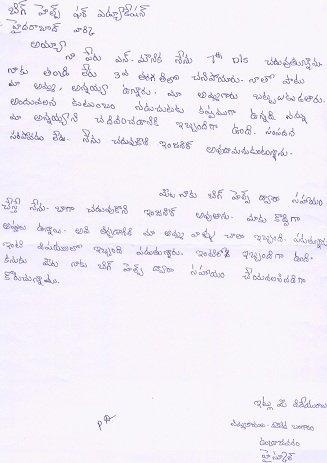 బిగ్ హెల్ప్ ఫర్ ఎడ్యుకేషన్
హైదరాబాద్ వారికి
అయ్యా
నా పేరు ఎన్. మౌనిక నేను 7th class చదువుతున్నాను.
నాకు తండ్రి లేరు 3వ తరగతిలో చనిపోయారు. నాతో పాటు
మా అమ్మ, అన్నయ్య ఉన్నారు. మా అమ్మగారు బట్టలు కుడతారు.
అందువలన కుటుంబం నడుచుటకు కష్టముగా ఉన్నది నన్ను
మా అన్నయ్యని చదివించడానికి ఇబ్బందిగా ఉంది. సంపాదన
సరిపోవడం లేదు. నేను చదువుకొని ఇంజనీర్ అవుదామనుకుంటున్నాను.
మీరు నాకు బిగ్ హెల్ప్ ద్వారా సహాయం
చేస్తే నేను. బాగా చదువుకొని ఇంజనీర్ అవుతాను. మాకు కొద్దిగా
అప్పులు ఉన్నాయి. అవి తీర్చడానికి మా అమ్మ వాళ్ళు చాలా ఇబ్బంది. పడుతున్నారు
ఇంటి విషయంలో ఇబ్బంది పడుతున్నారు. ఇబ్బందిగా ఉంది.
కనుక మీరు నాకు బిగ్ హెల్ప్ ద్వారా సహాయం చేయవలసినదిగా
కోరుచున్నాను.
ఇట్లు మీ విధేయురాలు